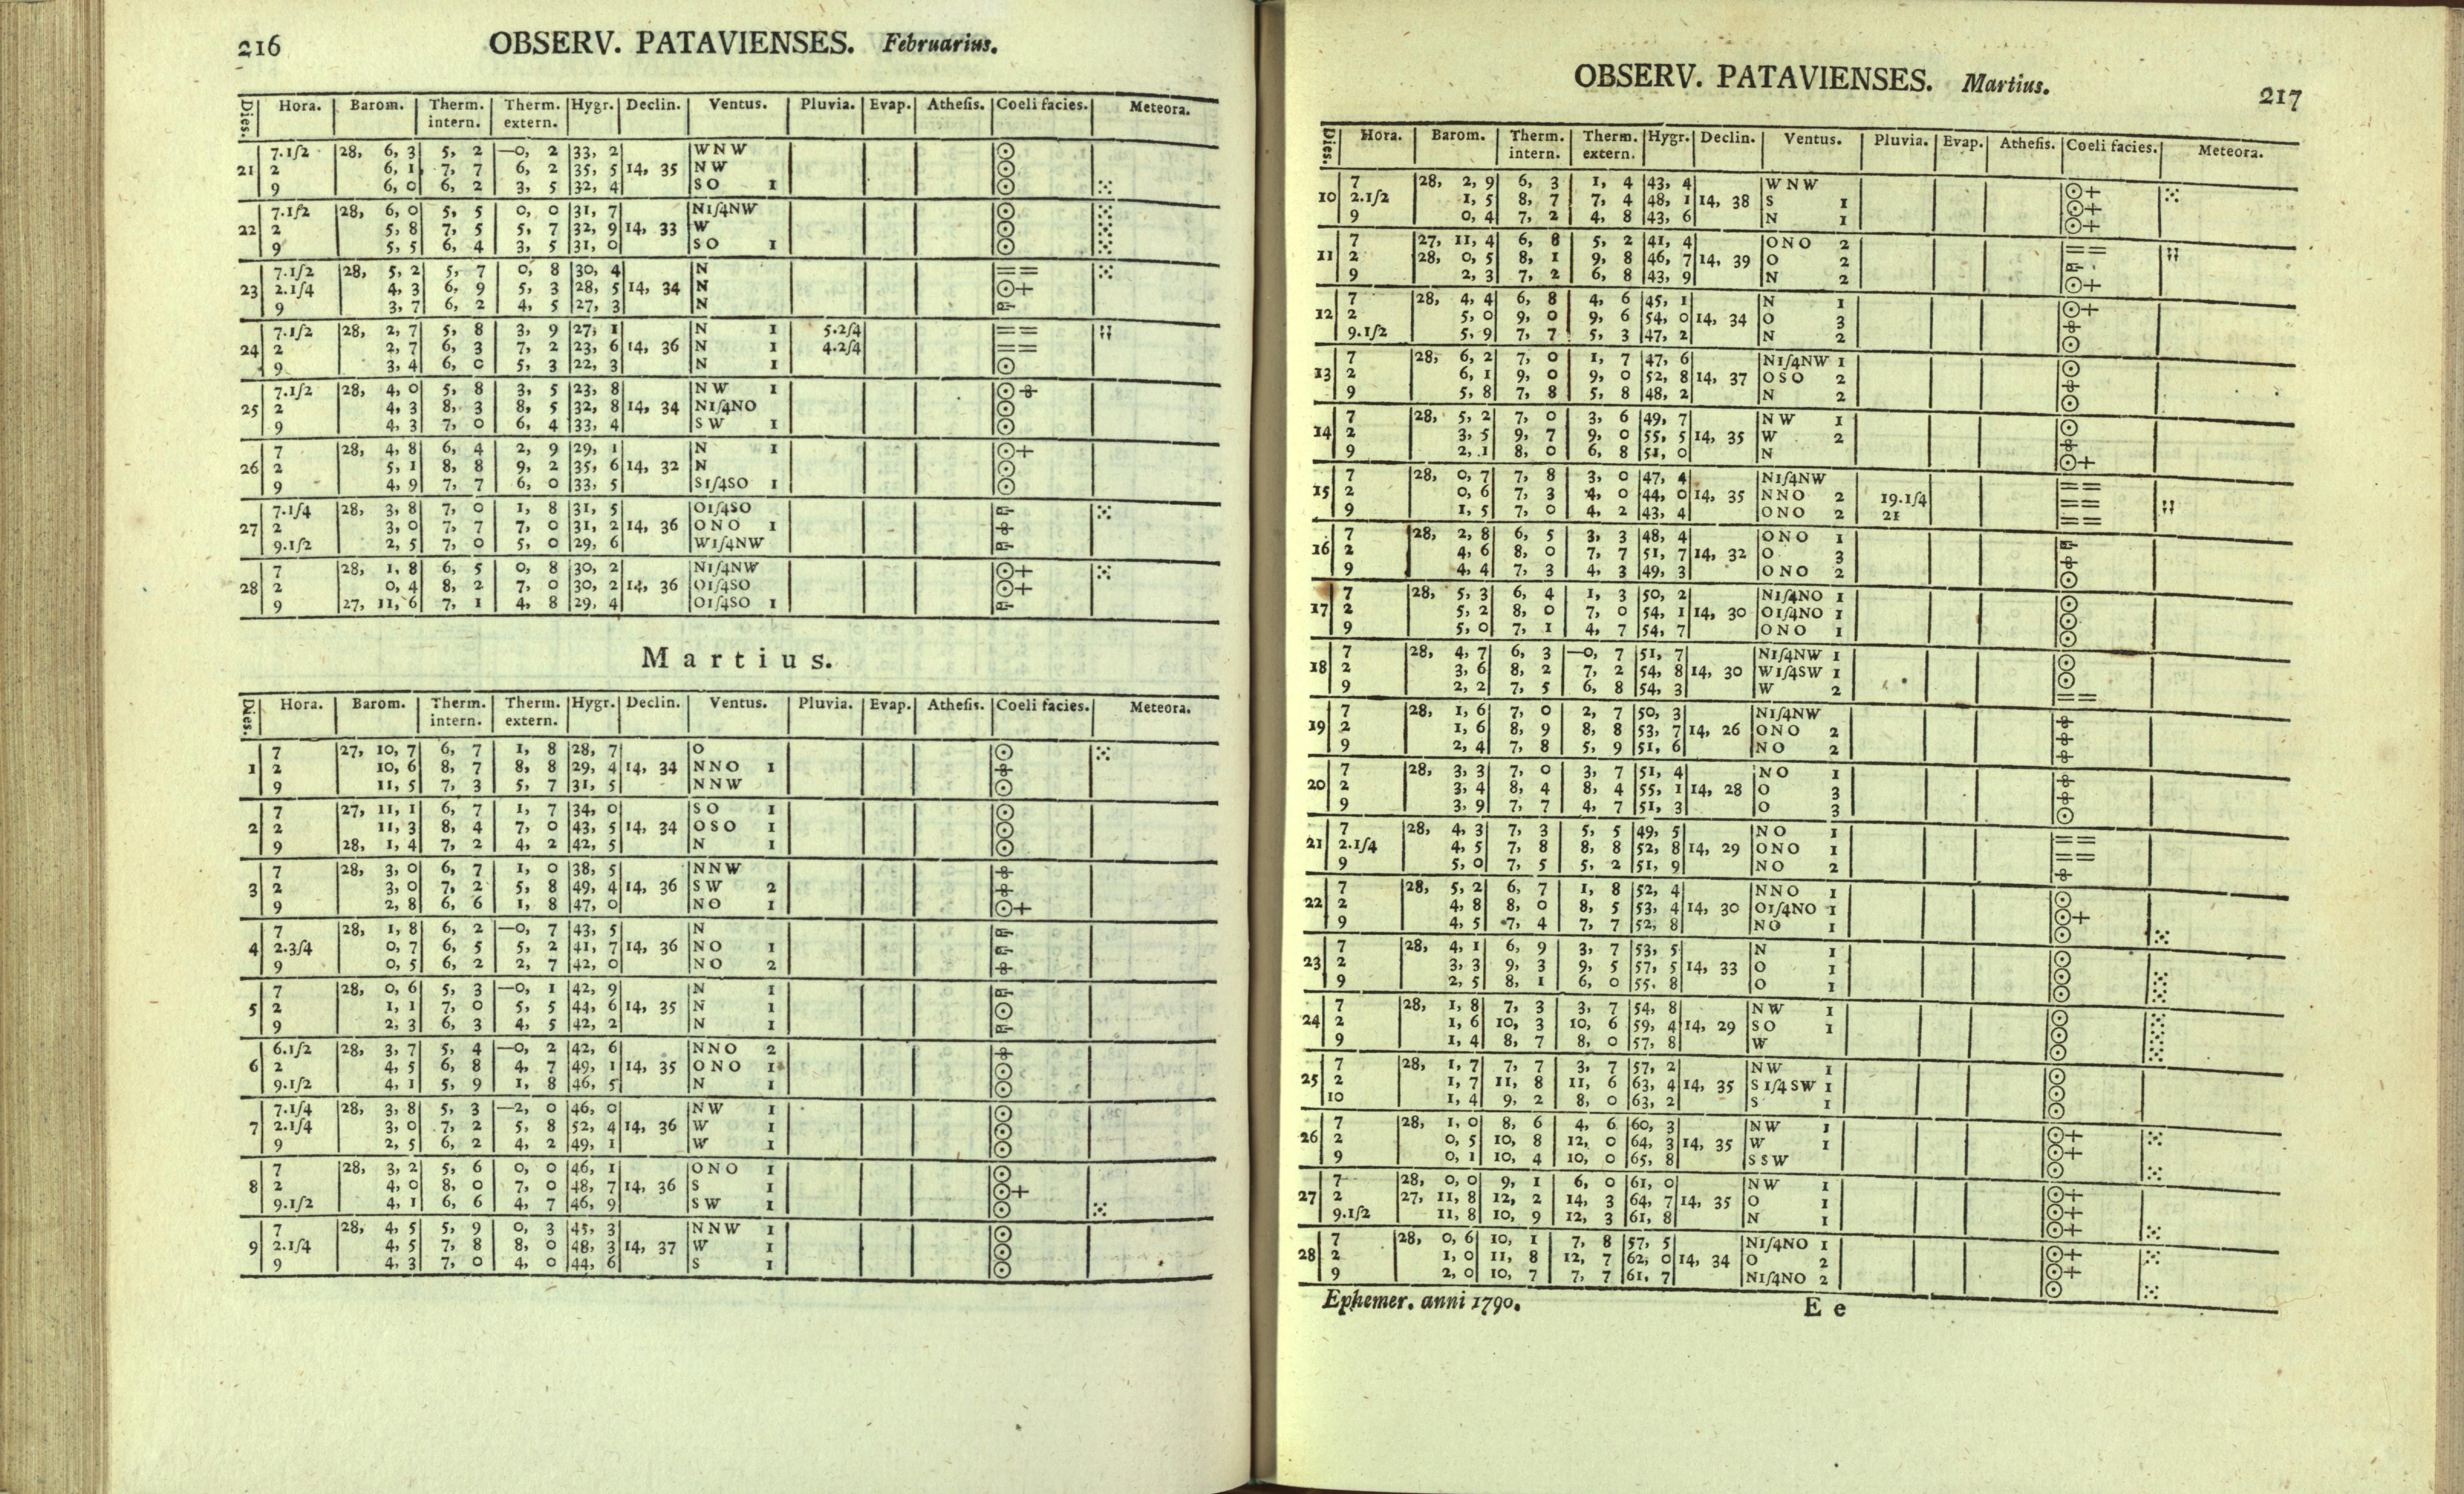 216
OBSERV. PATAVIENSES. Februarius.
Dies. Hora. Barom. Therm. intern. Therm. extern. Hygr. Declin. Ventus. Pluvia. Evap. Athesis. Coeli facies. Meteora.
7.1/2 28, 6, 3 5, 2 —0, 2 33, 2 WNW ⊙
21 2 6, 1 7, 7 6, 2 35, 5 14, 35 NW ⊙
9 6, 0 6, 2 3, 5 32, 4 SO 1 ⊙ ⁙
7.1/2 28, 6, 0 5, 5 0, 0 31, 7 N1/4NW ⊙ ⁙
22 2 5, 8 7, 5 5, 7 32, 9 14, 33 W ⊙ ⁙
9 5, 5 6, 4 3, 5 31, 0 SO 1 ⊙ ⁙
7.1/2 28, 5, 2 5, 7 0, 8 30, 4 N == ⁙
23 2.1/4 4, 3 6, 9 5, 3 28, 5 14, 34 N ⊙+
9 3, 7 6, 2 4, 5 27, 3 N
7.1/2 28, 2, 7 5, 8 3, 9 27, 1 N 1 5.2/4 ==
24 2 2, 7 6, 3 7, 2 23, 6 14, 36 N 1 4.2/4 ==
9 3, 4 6, 0 5, 3 22, 3 N 1 ⊙
7.1/2 28, 4, 0 5, 8 3, 5 23, 8 NW 1 ⊙
25 2 4, 3 8, 3 8, 5 32, 8 14, 34 N1/4NO ⊙
9 4, 3 7, 0 6, 4 33, 4 SW 1 ⊙
7 28, 4, 8 6, 4 2, 9 29, 1 N 1 ⊙+
26 2 5, 1 8, 8 9, 2 35, 6 14, 32 N ⊙
9 4, 9 7, 7 6, 0 33, 5 S1/4SO 1 ⊙
7.1/4 28, 3, 8 7, 0 1, 8 31, 5 O1/4SO ⁙
27 2 3, 0 7, 7 7, 0 31, 2 14, 36 ONO 1
9.1/2 2, 5 7, 0 5, 0 29, 6 W1/4NW
7 28, 1, 8 6, 5 0, 8 30, 2 N1/4NW ⊙+ ⁙
28 2 0, 4 8, 2 7, 0 30, 2 14, 36 O1/4SO ⊙+
9 27, 11, 6 7, 1 4, 8 29, 4 O1/4SO 1
Martius.
Dies. Hora. Barom. Therm. intern. Therm. extern. Hygr. Declin. Ventus. Pluvia. Evap. Athesis. Coeli facies. Meteora.
7 27, 10, 7 6, 7 1, 8 28, 7 O ⊙ ⁙
1 2 10, 6 8, 7 8, 8 29, 4 14, 34 NNO 1
9 11, 5 7, 3 5, 7 31, 5 NNW ⊙
7 27, 11, 1 6, 7 1, 7 34, 0 SO 1 ⊙
2 2 11, 3 8, 4 7, 0 43, 5 14, 34 OSO 1 ⊙
9 28, 1, 4 7, 2 4, 2 42, 5 N 1 ⊙
7 28, 3, 0 6, 7 1, 0 38, 5 NNW
3 2 3, 0 7, 2 5, 8 49, 4 14, 36 SW 2
9 2, 8 6, 6 1, 8 47, 0 NO 1 ⊙+
7 28, 1, 8 6, 2 —0, 7 43, 5 N
4 2.3/4 0, 7 6, 5 5, 2 41, 7 14, 36 NO 1
9 0, 5 6, 2 2, 7 42, 0 NO 2
7 28, 0, 6 5, 3 —0, 1 42, 9 N 1
5 2 1, 1 7, 0 5, 5 44, 6 14, 35 N 1 ⊙
9 2, 3 6, 3 4, 5 42, 2 N 1
6.1/2 28, 3, 7 5, 4 —0, 2 42, 6 NNO 2
6 2 4, 5 6, 8 4, 7 49, 1 14, 35 ONO 1 ⊙
9.1/2 4, 1 5, 9 1, 8 46, 5 N 1 ⊙
7.1/4 28, 3, 8 5, 3 —2, 0 46, 0 NW 1 ⊙
7 2.1/4 3, 0 7, 2 5, 8 52, 4 14, 36 W 1 ⊙
9 2, 5 6, 2 4, 2 49, 1 W 1 ⊙
7 28, 3, 2 5, 6 0, 0 46, 1 ONO 1 ⊙
8 2 4, 0 8, 0 7, 0 48, 7 14, 36 S 1 ⊙+
9.1/2 4, 1 6, 6 4, 7 46, 9 SW 1 ⊙ ⁙
7 28, 4, 5 5, 9 0, 3 45, 3 NNW 1 ⊙
9 2.1/4 4, 5 7, 8 8, 0 48, 3 14, 37 W 1 ⊙
9 4, 3 7, 0 4, 0 44, 6 S 1 ⊙
OBSERV. PATAVIENSES. Martius. 217
Dies. Hora. Barom. Therm. intern. Therm. extern. Hygr. Declin. Ventus. Pluvia. Evap. Athesis. Coeli facies. Meteora.
7 28, 2, 9 6, 3 1, 4 43, 4 WNW ⊙+ ⁙
10 2.1/2 1, 5 8, 7 7, 4 48, 1 14, 38 S 1 ⊙+
9 0, 4 7, 2 4, 8 43, 6 N 1 ⊙+
7 27, 11, 4 6, 8 5, 2 41, 4 ONO 2 ==
11 2 28, 0, 5 8, 1 9, 8 46, 7 14, 39 O 2
9 2, 3 7, 2 6, 8 43, 9 N 2 ⊙+
7 28, 4, 4 6, 8 4, 6 45, 1 N 1 ⊙+
12 2 5, 0 9, 0 9, 6 54, 0 14, 34 O 3
9.1/2 5, 9 7, 7 5, 3 47, 2 N 2 ⊙
7 28, 6, 2 7, 0 1, 7 47, 6 N1/4NW 1 ⊙
13 2 6, 1 9, 0 9, 0 52, 8 14, 37 OSO 2
9 5, 8 7, 8 5, 8 48, 2 N 2 ⊙
7 28, 5, 2 7, 0 3, 6 49, 7 NW 1 ⊙
14 2 3, 5 9, 7 9, 0 55, 5 14, 35 W 2
9 2, 1 8, 0 6, 8 51, 0 N ⊙+
7 28, 0, 7 7, 8 3, 0 47, 4 N1/4NW ==
15 2 0, 6 7, 3 4, 0 44, 0 14, 35 NNO 2 19.1/4 ==
9 1, 5 7, 0 4, 2 43, 4 ONO 2 21 ==
7 28, 2, 8 6, 5 3, 3 48, 4 ONO 1
16 2 4, 6 8, 0 7, 7 51, 7 14, 32 O 3
9 4, 4 7, 3 4, 3 49, 3 ONO 2 ⊙
7 28, 5, 3 6, 4 1, 3 50, 2 N1/4NO 1 ⊙
17 2 5, 2 8, 0 7, 0 54, 1 14, 30 O1/4NO 1 ⊙
9 5, 0 7, 1 4, 7 54, 7 ONO 1 ⊙
7 28, 4, 7 6, 3 —0, 7 51, 7 N1/4NW 1 ⊙
18 2 3, 6 8, 2 7, 2 54, 8 14, 30 W1/4SW 1 ⊙
9 2, 2 7, 5 6, 8 54, 3 W 2 ==
7 28, 1, 6 7, 0 2, 7 50, 3 N1/4NW
19 2 1, 6 8, 9 8, 8 53, 7 14, 26 ONO 2
9 2, 4 7, 8 5, 9 51, 6 NO 2
7 28, 3, 3 7, 0 3, 7 51, 4 NO 1
20 2 3, 4 8, 4 8, 4 55, 1 14, 28 O 3
9 3, 9 7, 7 4, 7 51, 3 O 3 ⊙
7 28, 4, 3 7, 3 5, 5 49, 5 NO 1 ==
21 2.1/4 4, 5 7, 8 8, 8 52, 8 14, 29 ONO 1 ==
9 5, 0 7, 5 5, 2 51, 9 NO 2
7 28, 5, 2 6, 7 1, 8 52, 4 NNO 1 ⊙
22 2 4, 8 8, 0 8, 5 53, 4 14, 30 O1/4NO 1 ⊙+
9 4, 5 7, 4 7, 7 52, 8 NO 1 ⊙ ⁙
7 28, 4, 1 6, 9 3, 7 53, 5 N 1 ⊙
23 2 3, 3 9, 3 9, 5 57, 5 14, 33 O 1 ⊙ ⁙
9 2, 5 8, 1 6, 0 55. 8 O 1 ⊙ ⁙
7 28, 1, 8 7, 3 3, 7 54, 8 NW 1 ⊙ ⁙
24 2 1, 6 10, 3 10, 6 59, 4 14, 29 SO 1 ⊙ ⁙
9 1, 4 8, 7 8, 0 57, 8 W ⊙ ⁙
7 28, 1, 7 7, 7 3, 7 57, 2 NW 1 ⊙
25 2 1, 7 11, 8 11, 6 63, 4 14, 35 S1/4SW 1 ⊙
10 1, 4 9, 2 8, 0 63, 2 S 1 ⊙
7 28, 1, 0 8, 6 4, 6 60, 3 NW 1 ⊙+ ⁙
26 2 0, 5 10, 8 12, 0 64, 3 14, 35 W 1 ⊙+
9 0, 1 10, 4 10, 0 65, 8 SSW ⊙ ⁙
7 28, 0, 0 9, 1 6, 0 61, 0 NW 1 ⊙+
27 2 27, 11, 8 12, 2 14, 3 64, 7 14, 35 O 1 ⊙+
9.1/2 11, 8 10, 9 12, 3 61, 8 N 1 ⊙+ ⁙
7 28, 0, 6 10, 1 7, 8 57, 5 N1/4NO 1 ⊙+ ⁙
28 2 1, 0 11, 8 12, 7 62, 0 14, 34 O 2 ⊙+
9 2, 0 10, 7 7, 7 61, 7 N1/4NO 2 ⊙ ⁙
Ephemer. anni 1790. E e